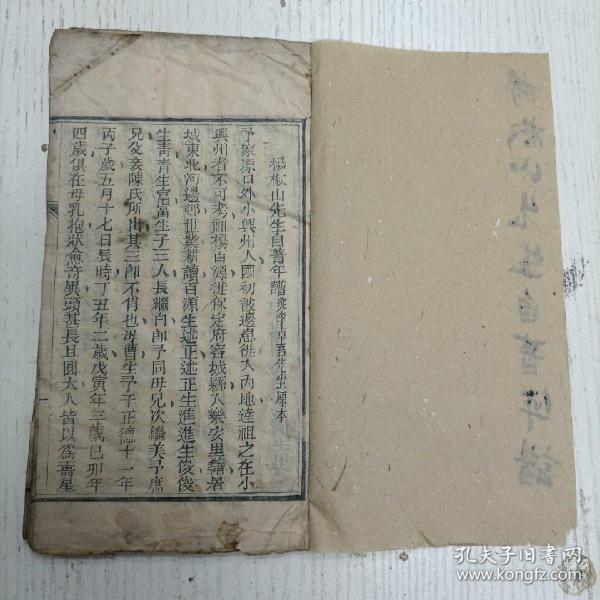 楊椒山先生自著年譜從李卓吾先生原本
予家原口外小興州人國初被邊患徙入內地遠祖之在小
興州者不可考祖楊百源徙保定府容城縣入樂安里籍居
城東北河邊郡世業耕讀百源生述正述正生進進生俊俊
生青青生富富生予三人長繼自即予同母兄次繼美予庶
兄父妾陳氏所出其三即不肖也母曹生予予正德十一年
丙子歲五月十七日辰時丁丑年二歲戊寅年三歲己卯年
四歲俱在母乳抱狀貌奇異頭甚長且圓大人皆以為壽星
椒山先生自著年譜
孔夫子旧书网
www.kongfz.com